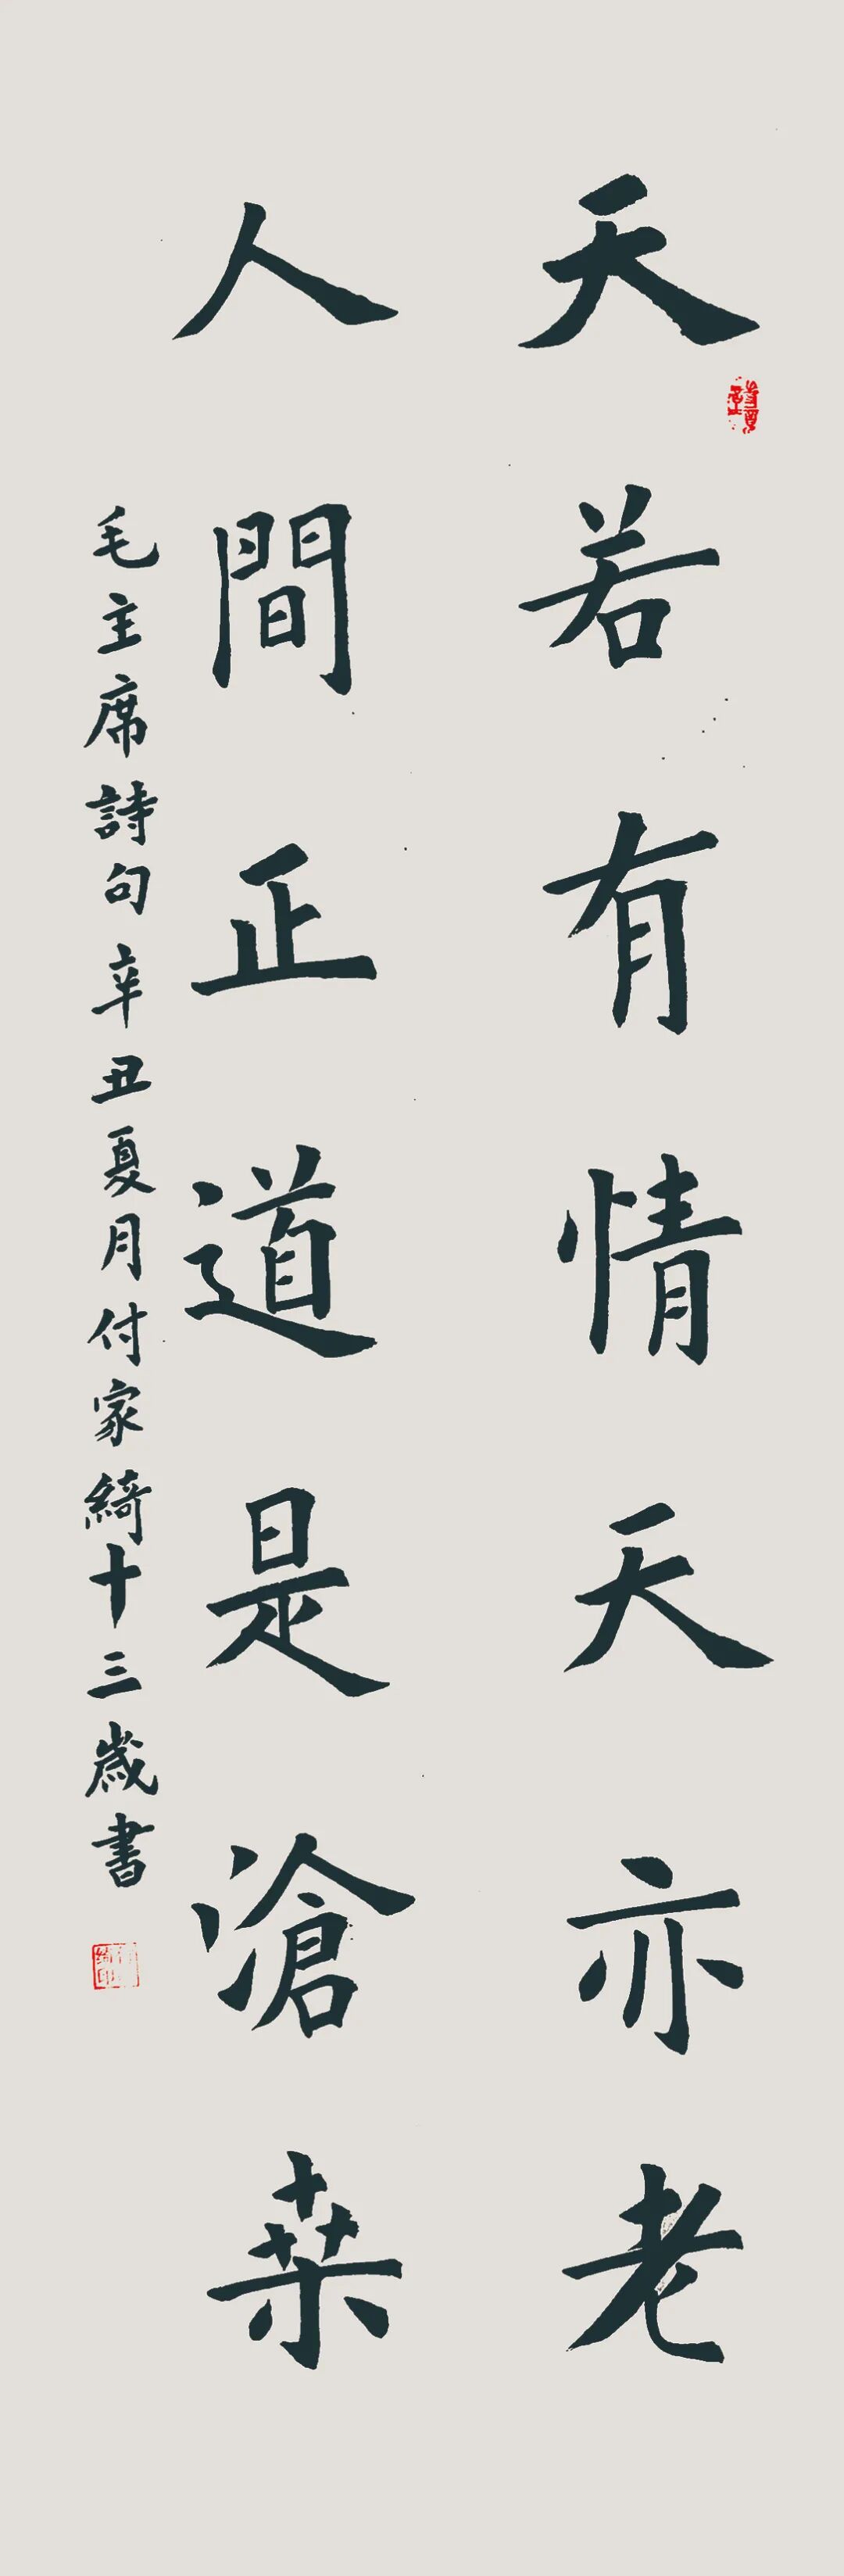 天若有情天亦老
人間正道是滄桒
毛主席詩句辛丑夏月付家綺十三歲書